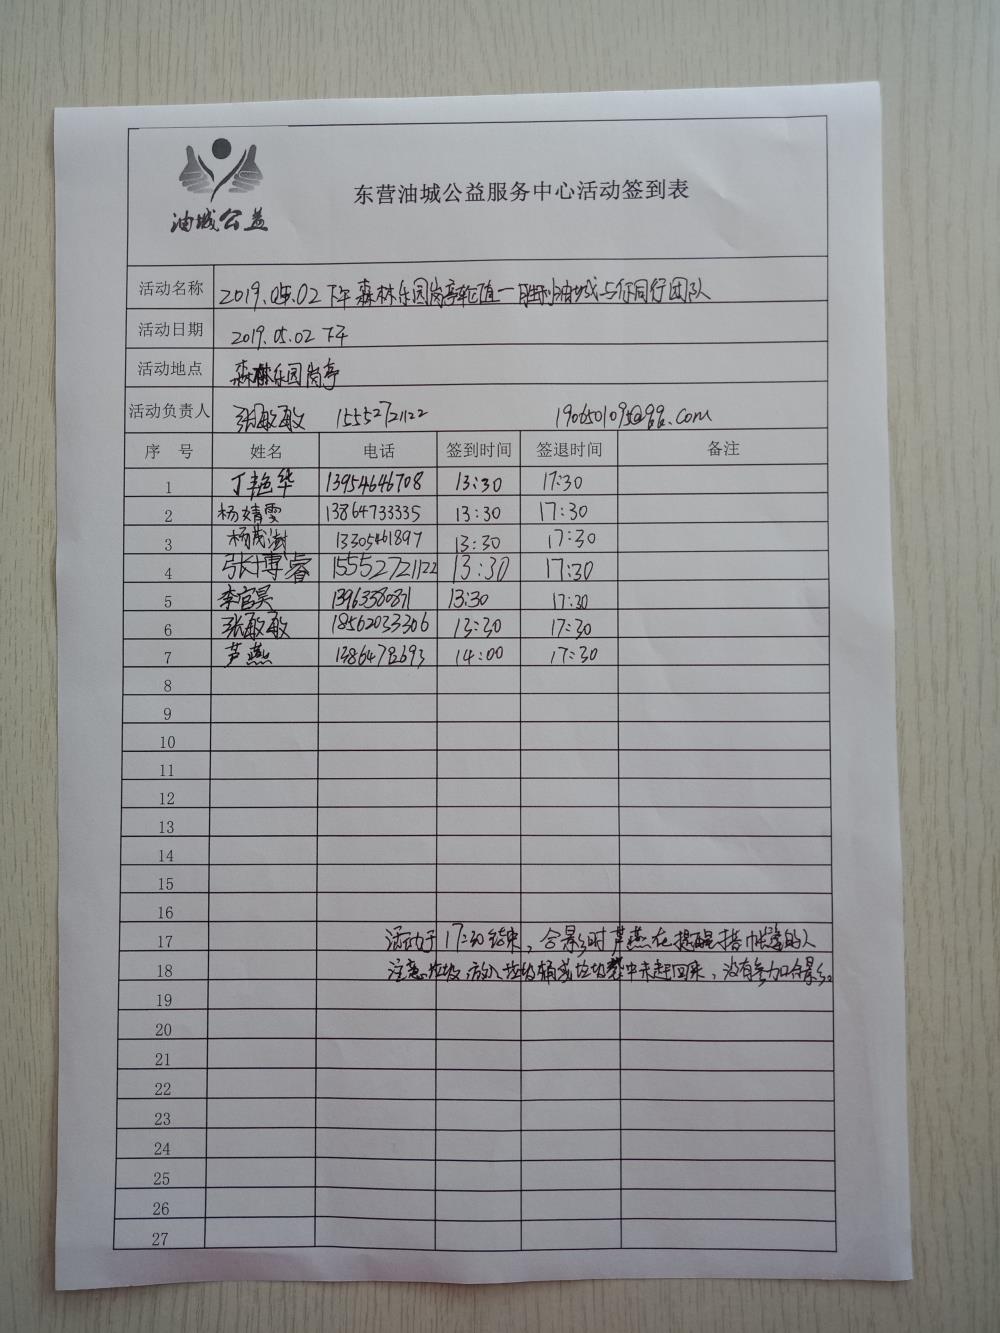 油城公益
东营油城公益服务中心活动签到表
活动名称 2019.05.02下午森林乐园岗亭轮值—胜利油城与你同行团队
活动日期 2019.05.02下午
活动地点 森林乐园岗亭
活动负责人 张敏敏 15552721122 1906501095@qq.com
序 号 姓名 电话 签到时间 签退时间 备注
1 丁艳华 13954646708 13:30 17:30
2 杨婧雯 13864733335 13:30 17:30
3 杨茂澍 13305461897 13:30 17:30
4 张博睿 15552721122 13:30 17:30
5 李官昊 13963380871 13:30 17:30
6 张敏敏 18562033306 13:30 17:30
7 芦燕 14:00 17:30
8
9
10
11
12
13
14
15
16
17 活动于17:30结束,合影时芦燕在提醒搭帐篷的人
18 注意垃圾放入垃圾桶或垃圾袋中未赶回来,没有参加合影。
19
20
21
22
23
24
25
26
27